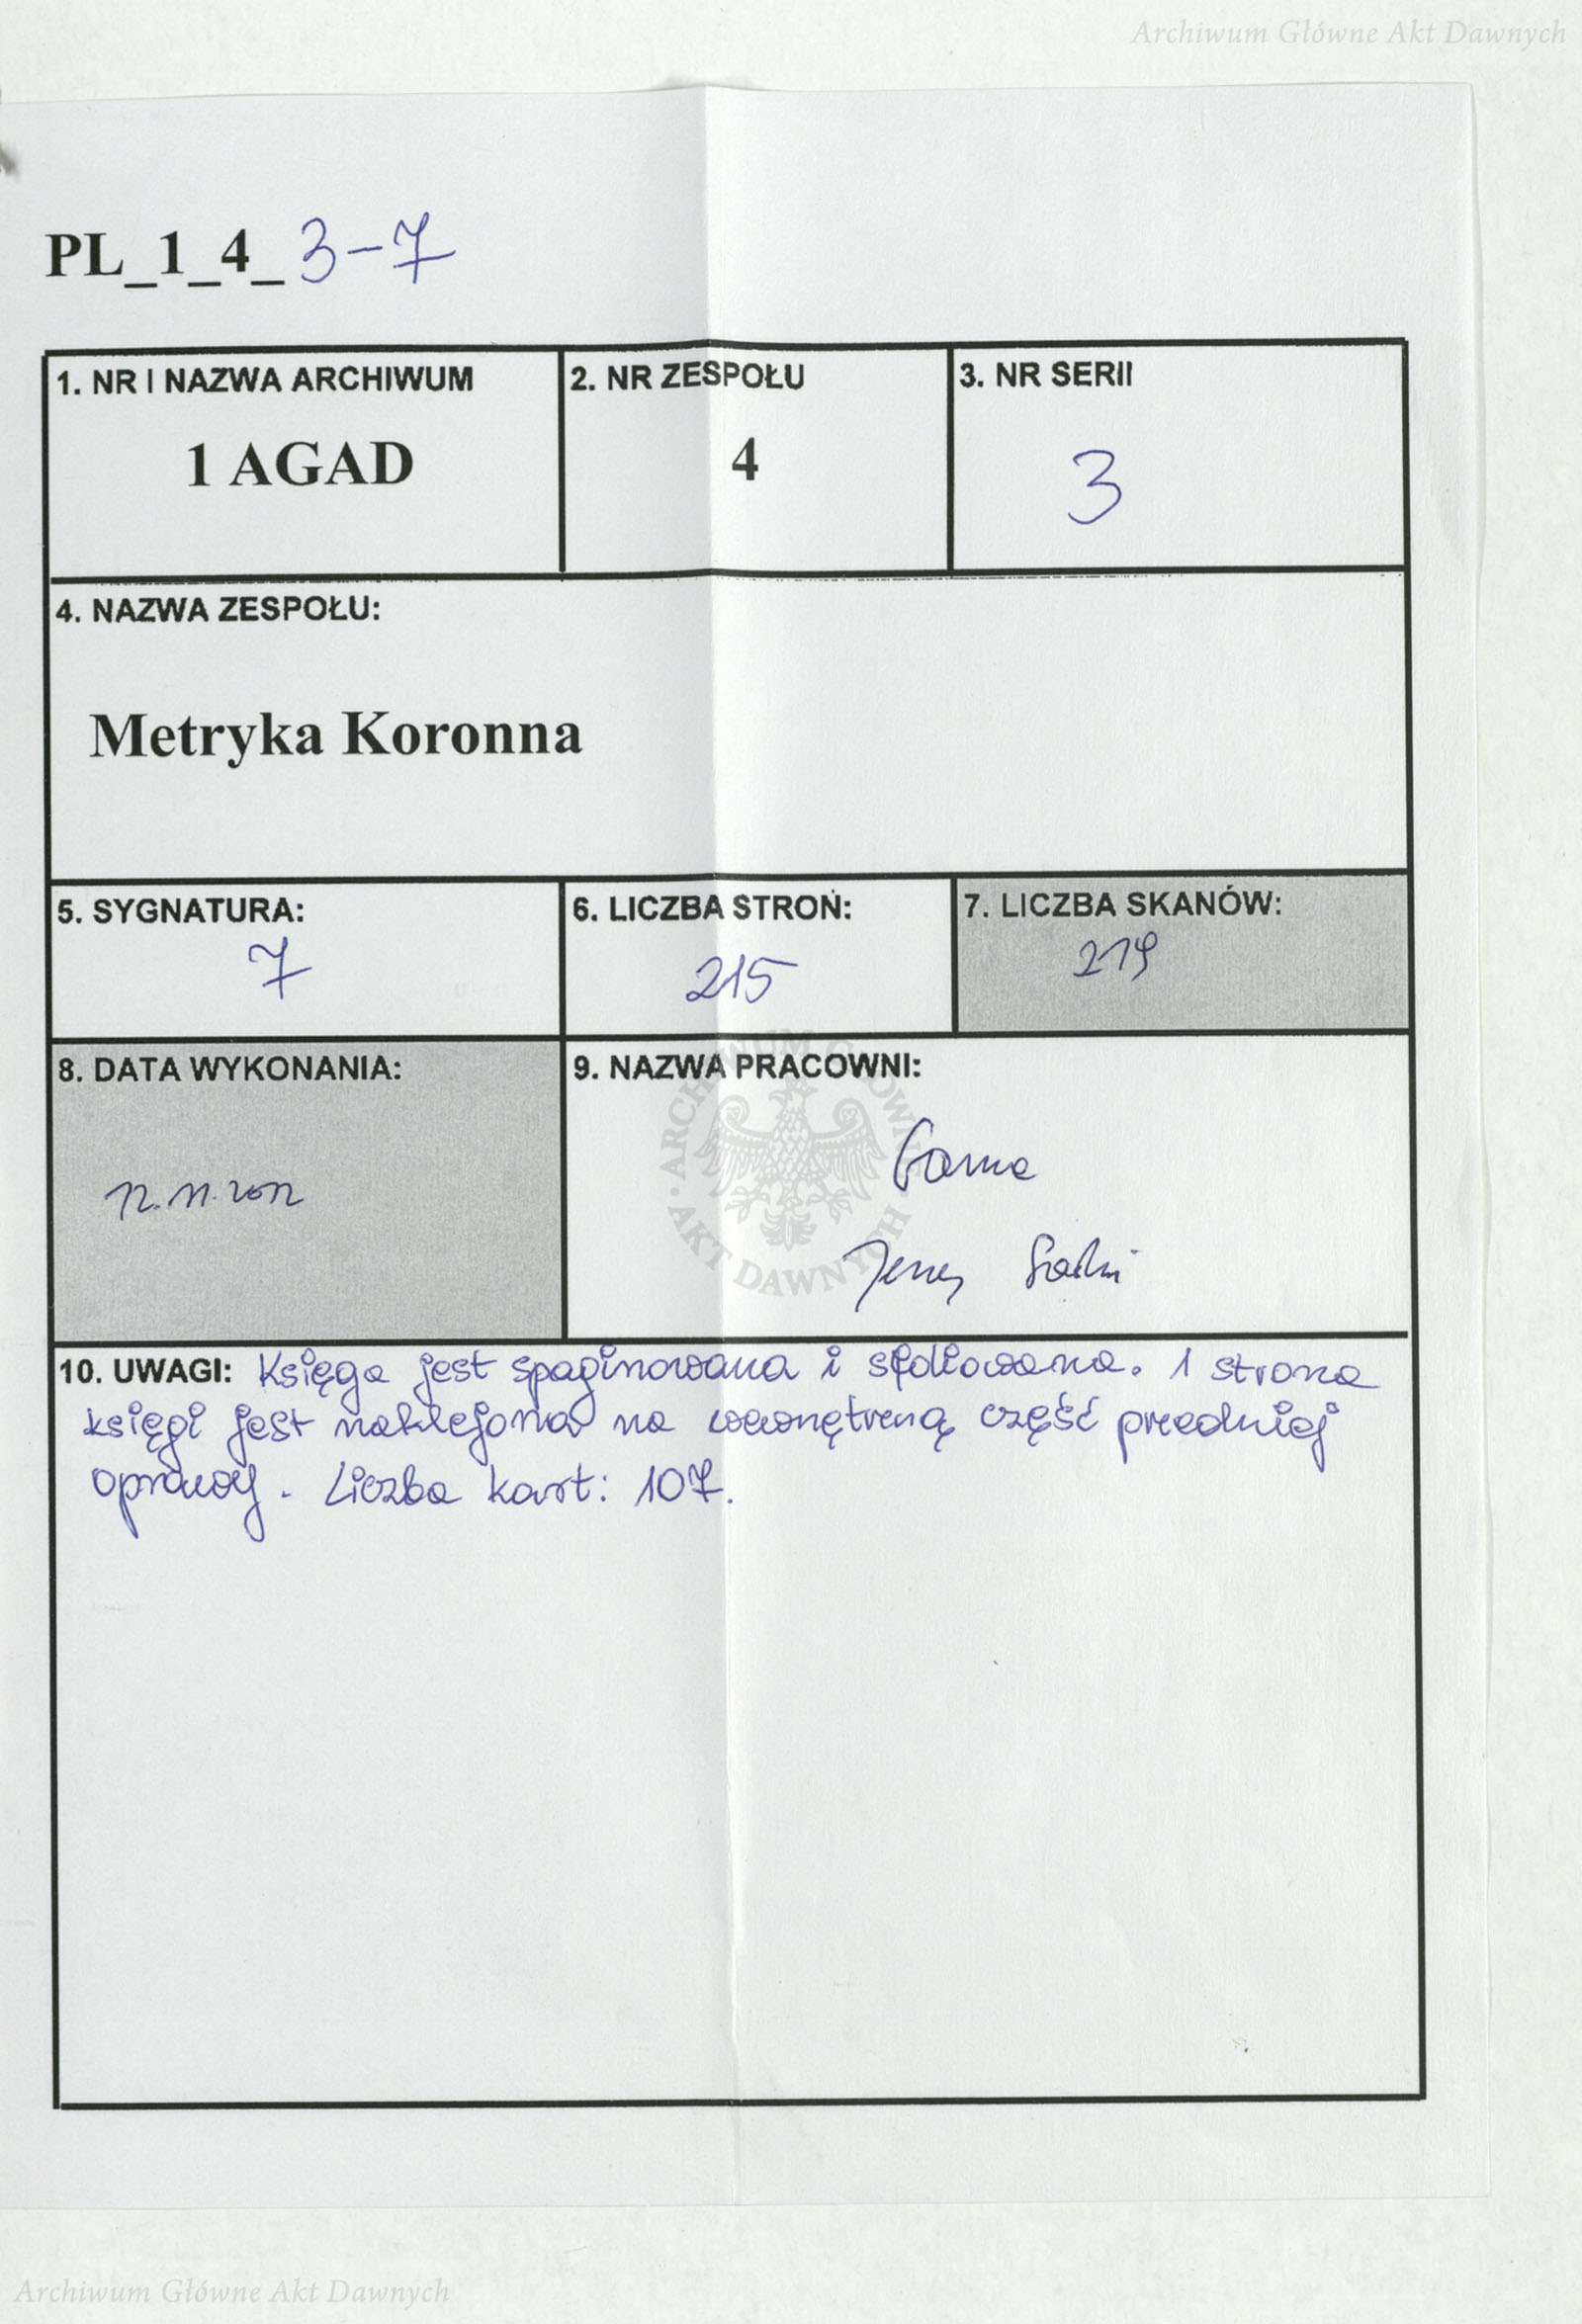 Archiwum Główne Akt Dawnych
PL_1_4_3-7
1. NR I NAZWA ARCHIWUM
1 AGAD
2. NR ZESPOŁU
4
3. NR SERII
3
4. NAZWA ZESPOŁU:
Metryka Koronna
5. SYGNATURA:
7
6. LICZBA STRON:
215
7. LICZBA SKANÓW:
219
8. DATA WYKONANIA:
12.11.2012
9. NAZWA PRACOWNI:
ARCHIWUM GŁÓWNE AKT DAWNYCH
Jerzy
10. UWAGI: Księga jest spaginowana i sfoliowana. 1 strona
księgi jest naklejona na wewnętrzną część przedniej
oprawy. Liczba kart: 107.
Archiwum Główne Akt Dawnych